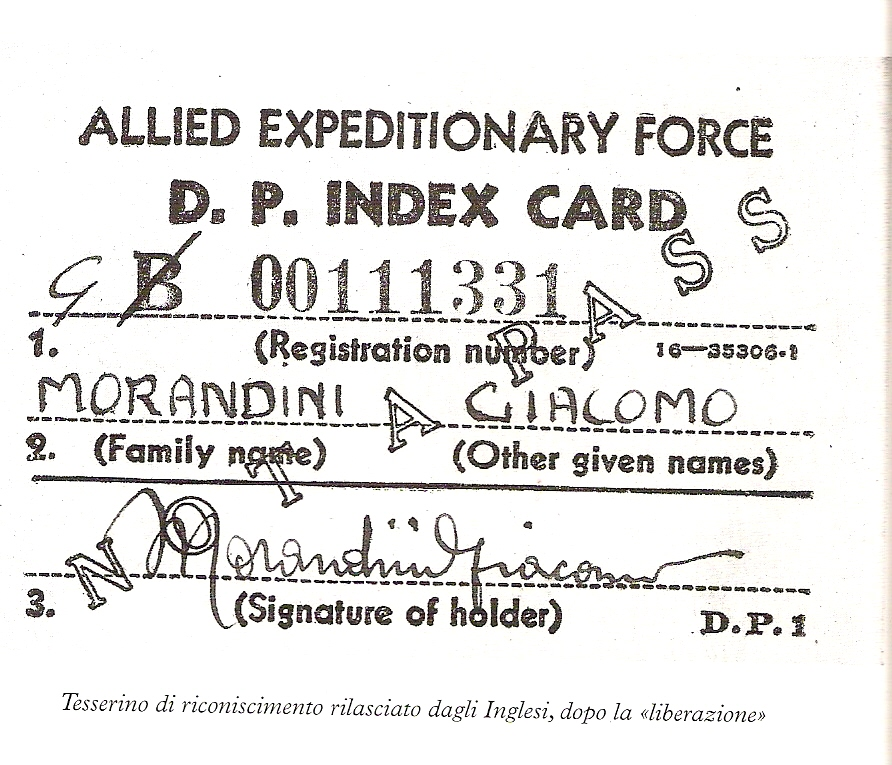 ALLIED EXPEDITIONARY FORCE
D. P. INDEX CARD
G B 00111331
1. (Registration number) 16—35306-1
MORANDINI GIACOMO
2. (Family name) (Other given names)
Morandini Giacomo
3. (Signature of holder) D.P.1
NOT A PASS
Tesserino di riconiscimento rilasciato dagli Inglesi, dopo la «liberazione»